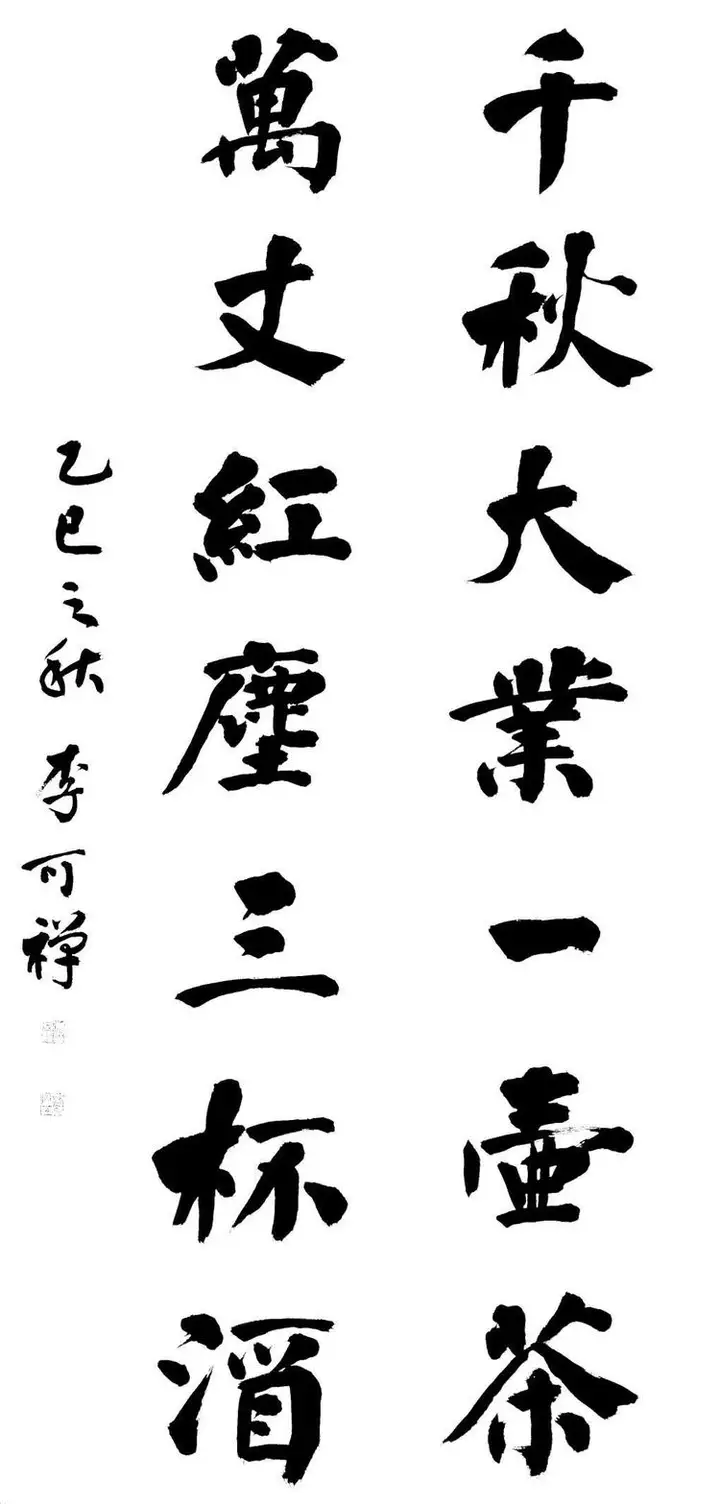 千秋大業一壺茶
萬丈紅塵三杯酒
乙巳之秋 李可禅